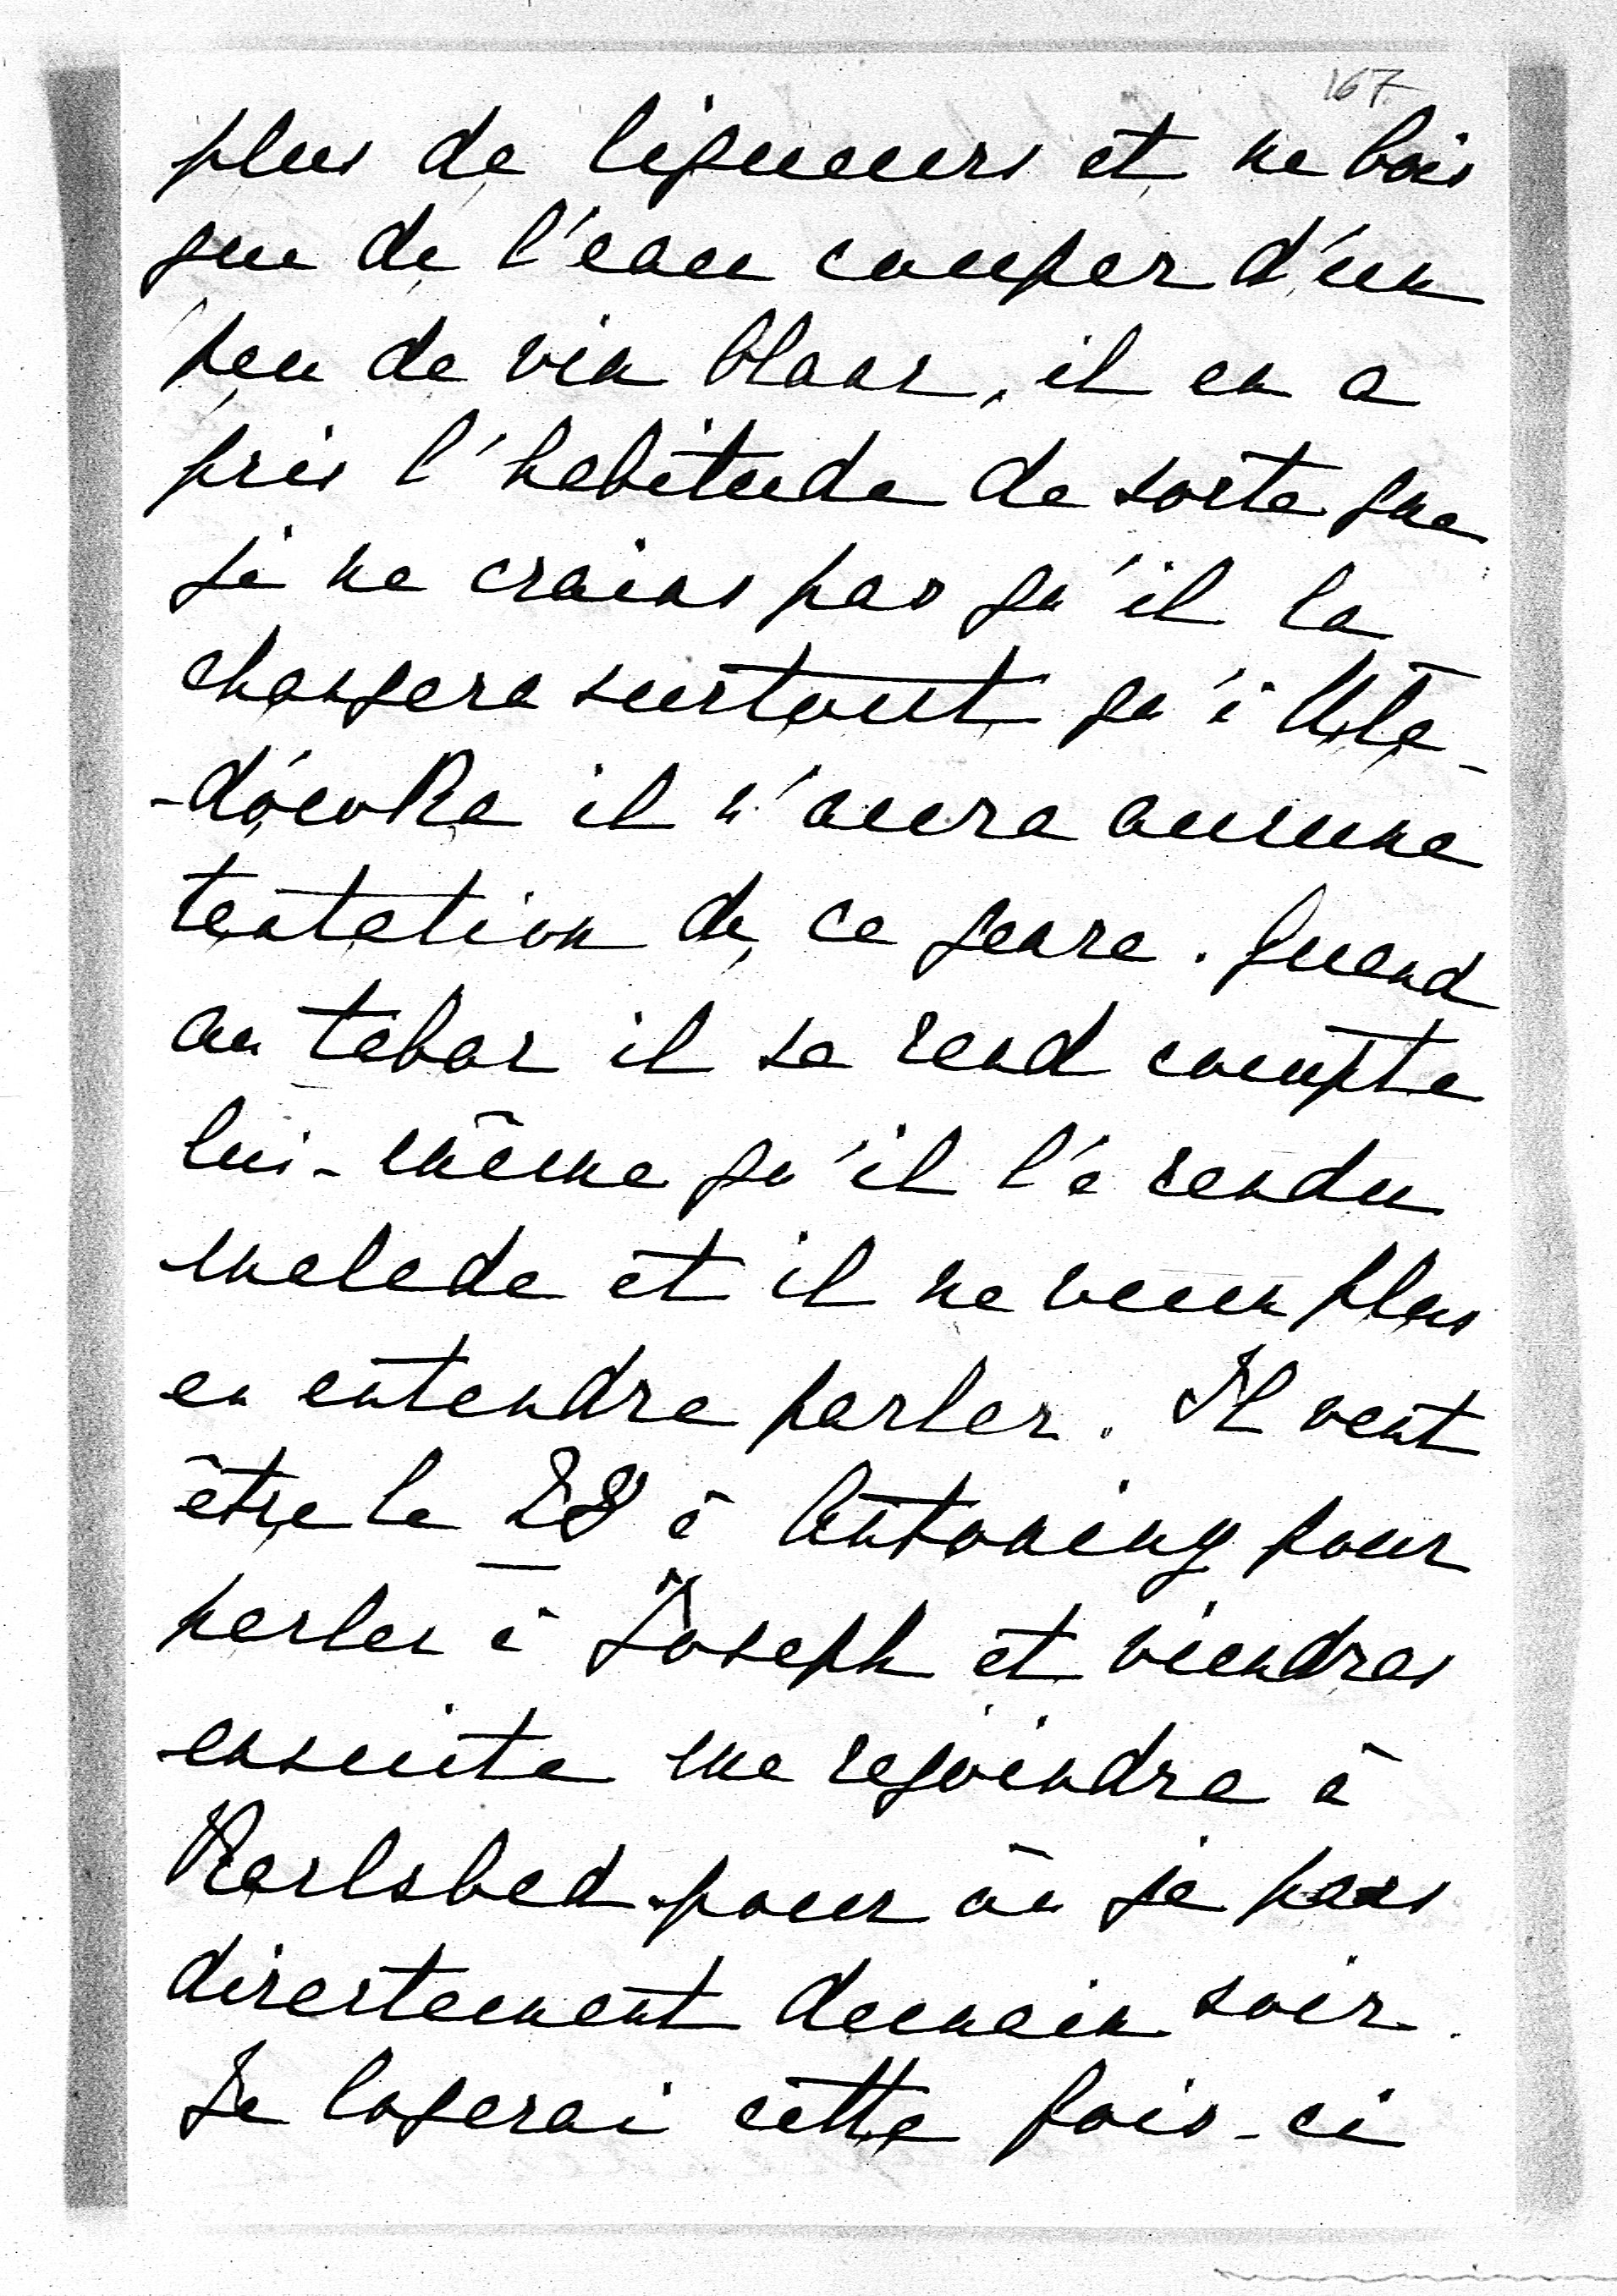 167
plus de liqueurs et ne bois
que de l'eau couper d'un
peu de vin blanc, il en a
pris l'habitude de sorte que
je ne crains pas qu'il la
changera surtout qu'à Uła-
-dówka il n'aura aucune
tentation de ce genre. Quand
au tabac il se rend compte
lui-même qu'il l'a rendu
malade et il ne veux plus
en entendre parler. Il veut
être le 28 à Antoniny pour
parler à Joseph et viendras
ensuite me rejoindre à
Karlsbad pour où je pars
directement demain soir.
Je logerai cette fois-ci